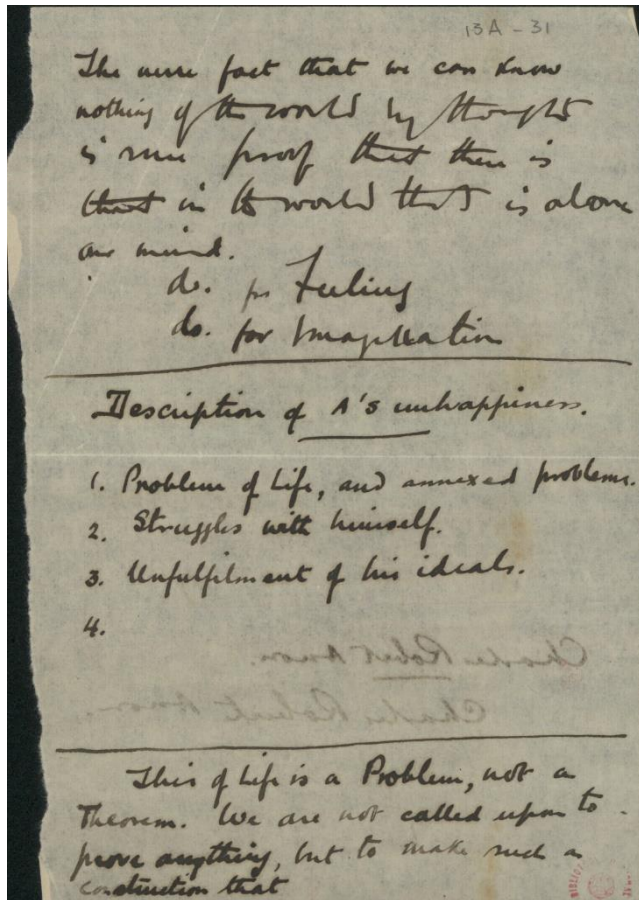 13A - 31
The mere fact that we can know
nothing of the world by thought
is sure proof that there is
that in the world that is above
our mind.
do. for Feeling
do. for Imagination
Description of A's unhappiness.
1. Problem of Life, and annexed problems.
2. Struggles with himself.
3. Unfulfilment of his ideals.
4.
Charles Robert Anon.
Charles Robert Anon.
This of Life is a Problem, not a
Theorem. We are not called upon to
prove anything, but to make such a
construction that